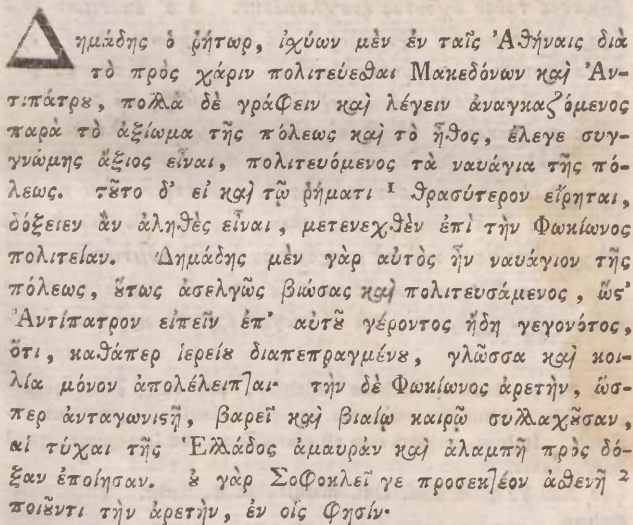 Δημάδης ὁ ῥήτωρ, ἰχύων μὲν ἐν ταῖς Ἀθήναις διὰ
τὸ πρὸς χάριν πολιτεύεσθαι Μακεδόνων καὶ Ἀν-
τιπάτρȣ, πολλὰ δὲ γράφειν καὶ λέγειν ἀναγκαζόμενος
παρὰ τὸ ἀξίωμα τῆς πόλεως καὶ τὸ ἦθος, ἔλεγε συγ-
γνώμης ἄξιος εἶναι, πολιτευόμενος τὰ ναυάγια τῆς πό-
λεως. τȣ͂το δ' εἰ καὶ τῷ ῥήματι 1 θρασύτερον εἴρηται,
δόξειεν ἂν ἀληθὲς εἶναι, μετενεχθὲν ἐπὶ τὴν Φωκίωνος
πολιτείαν. Δημάδης μὲν γὰρ αὐτὸς ἦν ναυάγιον τῆς
πόλεως, ȣ̔́τως ἀσελγῶς βιώσας καὶ πολιτευσάμενος, ὥς'
Ἀντίπατρον εἰπεῖν ἐπ' αὐτȣ͂ γέροντος ἤδη γεγονότος,
ὅτι, καθάπερ ἱερείȣ διαπεπραγμένȣ, γλῶσσα καὶ κοι-
λία μόνον ἀπολέλειπται· τὴν δὲ Φωκίωνος ἀρετὴν, ὥσ-
περ ἀνταγωνιϛῇ, βαρεῖ καὶ βιαίῳ καιρῷ συλλαχȣ͂σαν,
αἱ τύχαι τῆς Ἑλλάδος ἀμαυρὰν καὶ ἀλαμπῆ πρὸς δό-
ξαν ἐποίησαν. ȣ̓ γὰρ Σοφοκλεῖ γε προσεκτέον ἀσθενῆ 2
ποιȣ͂ντι τὴν ἀρετὴν, ἐν οἷς φησίν·